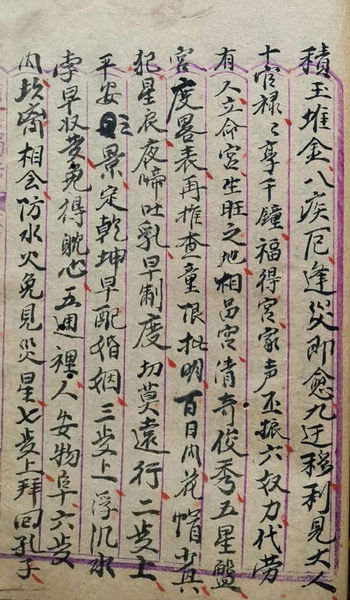 積玉堆金八疾厄逢災即愈九迁移利見大人
十官禄々享千鐘福得宮家声丕振六奴力代劳
有人立命宮生旺之地相皃宮清奇俊秀五星盤
宮度畧表再推查童限批明百日内花帽出其
犯星辰夜啼吐乳早制度切莫遠行二岁上
平安景定乾坤早配婚姻三岁上浮沉水
孛早收岁免得躭心五週裡人安物阜六岁
内坎离相会防水火免見災星七岁上拜曰孔子